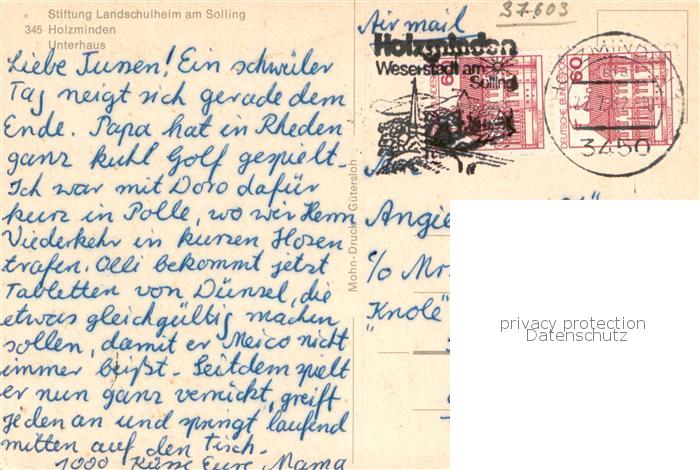 Stiftung Landschulheim am Solling
345 Holzminden
Unterhaus
37603
Liebe Tussen! Ein schwüler
Tag neigt sich gerade dem
Ende. Papa hat in Rheden
ganz kuhl Golf gespielt.
Ich war mit Doro dafür
kurz in Polle, wo wir Herrn
Viederkehr in kurzen Hosen
trafen. Olli bekommt jetzt
Tabletten von Dünsel, die
etwas gleichgültig machen
sollen, damit er Meico nicht
immer beißt. Seitdem spielt
er nun ganz verrückt, greift
jeden an und springt laufend
mitten auf den Tisch.
1000 Küsse Eure Mama
Mohn-Druck Gütersloh
Air mail
Holzminden
Weserstadt am
Solling
60
DEUTSCHE BUNDESPOST
60
HOLZMINDEN
3450
Angie
c/o Mr.
"Knole"
privacy protection
Datenschutz